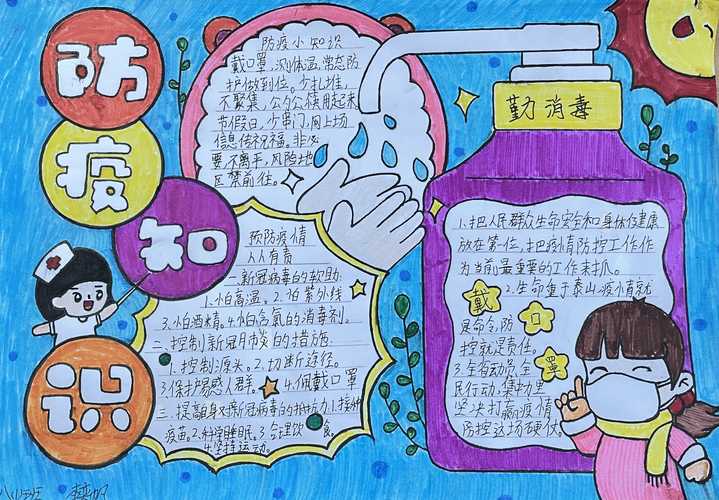 防
疫
知
识
防疫小知识
戴口罩,测体温,常态防
护做到位。少扎堆,
不聚集,公勺公筷用起来
节假日,少串门,网上场
信息传祝福。非必
要,不离手,风险地
区禁前往。
预防疫情
人人有责
一、新冠病毒的软肋
1.怕高温。2.怕紫外线
3.怕酒精。4.怕含氯的消毒剂。
二、控制新冠肺炎的措施
1.控制源头。2.切断途径。
3.保护易感人群。4.佩戴口罩
三、提高自身对新冠病毒的抵抗力1.接种
疫苗。2.科学睡眠。3.合理饮食。
4.坚持运动。
勤消毒
1.把人民群众生命安全和身体健康
放在第一位,把疫情防控工作作
为当前最重要的工作来抓。
2.生命重于泰山疫情就
是命令,防
控就是责任。
3.全省动员,全
民行动,集物里
坚决打赢疫情
防控这场硬仗。
戴
口
罩